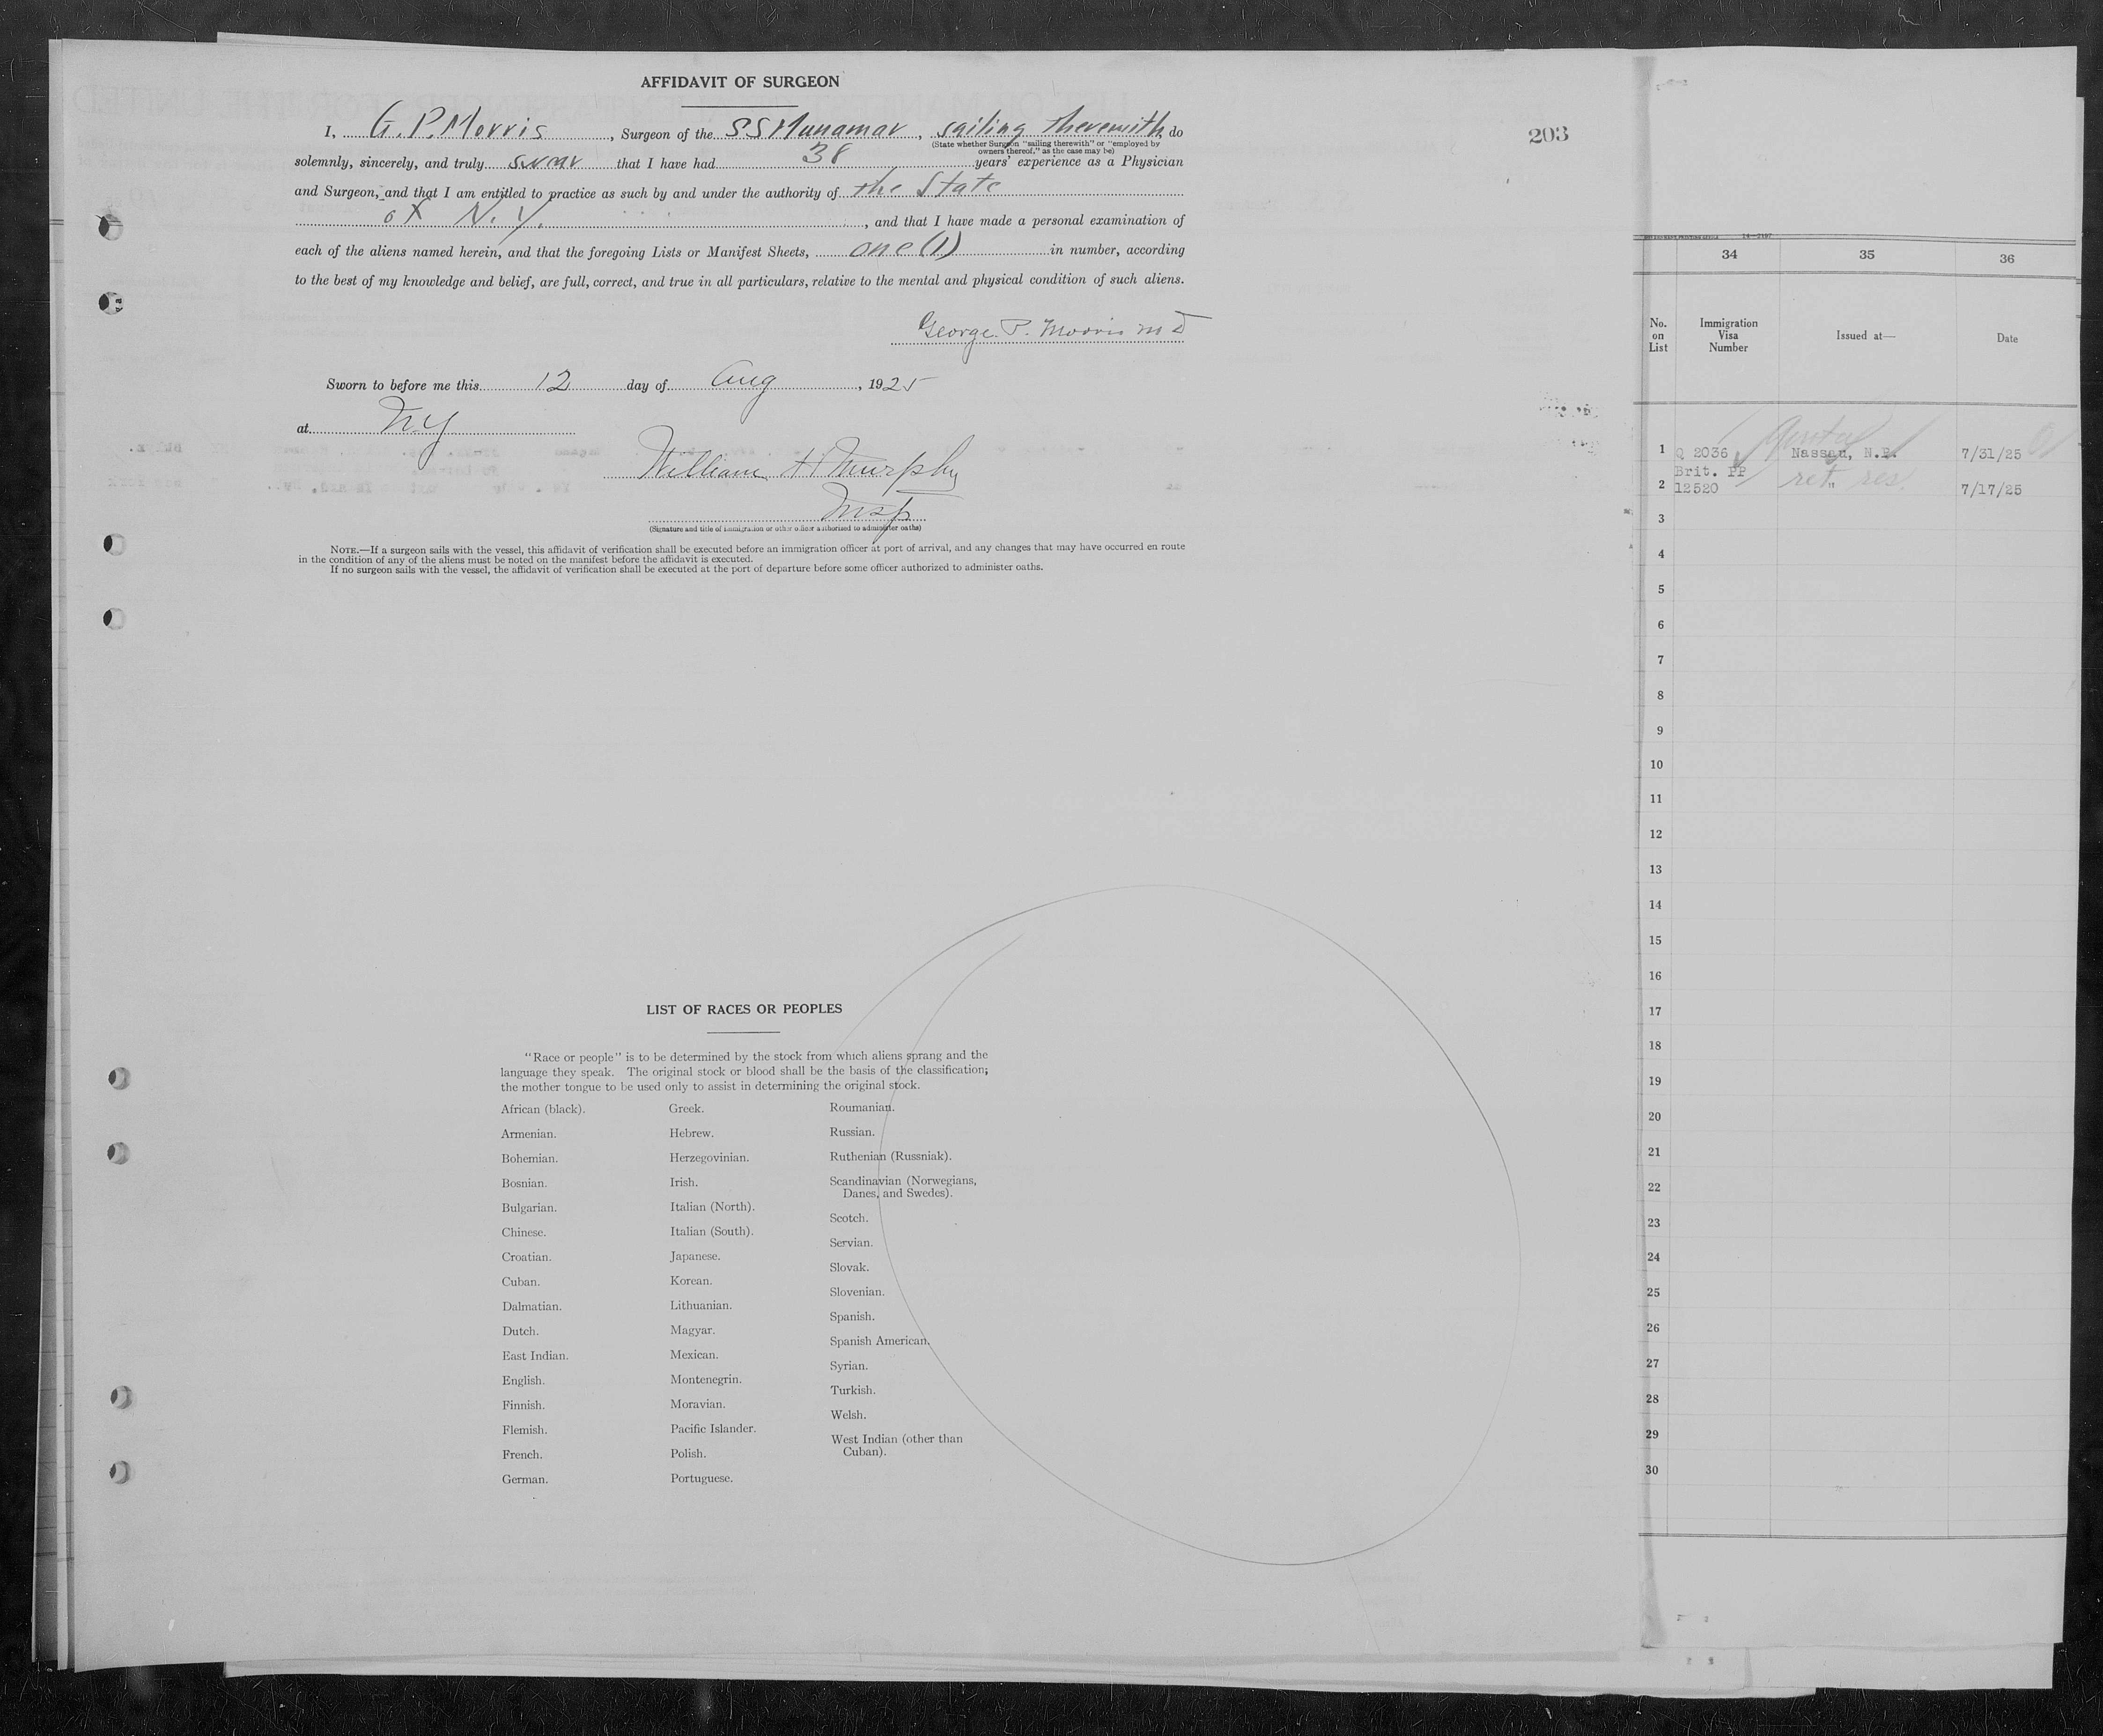 AFFIDAVIT OF SURGEON
I, G. P. Morris, Surgeon of the SS Munamar, sailing therewith do
(State whether Surgeon "sailing therewith" or "employed by
owners thereof," as the case may be)
solemnly, sincerely, and truly swear that I have had 38 years' experience as a Physician
and Surgeon, and that I am entitled to practice as such by and under the authority of the State
of N. Y., and that I have made a personal examination of
each of the aliens named herein, and that the foregoing Lists or Manifest Sheets, one (1) in number, according
to the best of my knowledge and belief, are full, correct, and true in all particulars, relative to the mental and physical condition of such aliens.
George P. Morris M D
Sworn to before me this 12 day of Aug, 1925
at N Y
William H Murphy
Insp
(Signature and title of immigration or other officer authorized to administer oaths)
NOTE.—If a surgeon sails with the vessel, this affidavit of verification shall be executed before an immigration officer at port of arrival, and any changes that may have occurred en route
in the condition of any of the aliens must be noted on the manifest before the affidavit is executed.
If no surgeon sails with the vessel, the affidavit of verification shall be executed at the port of departure before some officer authorized to administer oaths.
203
LIST OF RACES OR PEOPLES
"Race or people" is to be determined by the stock from which aliens sprang and the
language they speak. The original stock or blood shall be the basis of the classification;
the mother tongue to be used only to assist in determining the original stock.
African (black).
Armenian.
Bohemian.
Bosnian.
Bulgarian.
Chinese.
Croatian.
Cuban.
Dalmatian.
Dutch.
East Indian.
English.
Finnish.
Flemish.
French.
German.
Greek.
Hebrew.
Herzegovinian.
Irish.
Italian (North).
Italian (South).
Japanese.
Korean.
Lithuanian.
Magyar.
Mexican.
Montenegrin.
Moravian.
Pacific Islander.
Polish.
Portuguese.
Roumanian.
Russian.
Ruthenian (Russniak).
Scandinavian (Norwegians,
Danes, and Swedes).
Scotch.
Servian.
Slovak.
Slovenian.
Spanish.
Spanish American.
Syrian.
Turkish.
Welsh.
West Indian (other than
Cuban).
14—2197
34 35 36
No. on List
Immigration Visa Number
Issued at—
Date
1 Q 2036 Nassau, N.P. 7/31/25
Brit. PP
2 12520 " ret. res. 7/17/25
3
4
5
6
7
8
9
10
11
12
13
14
15
16
17
18
19
20
21
22
23
24
25
26
27
28
29
30